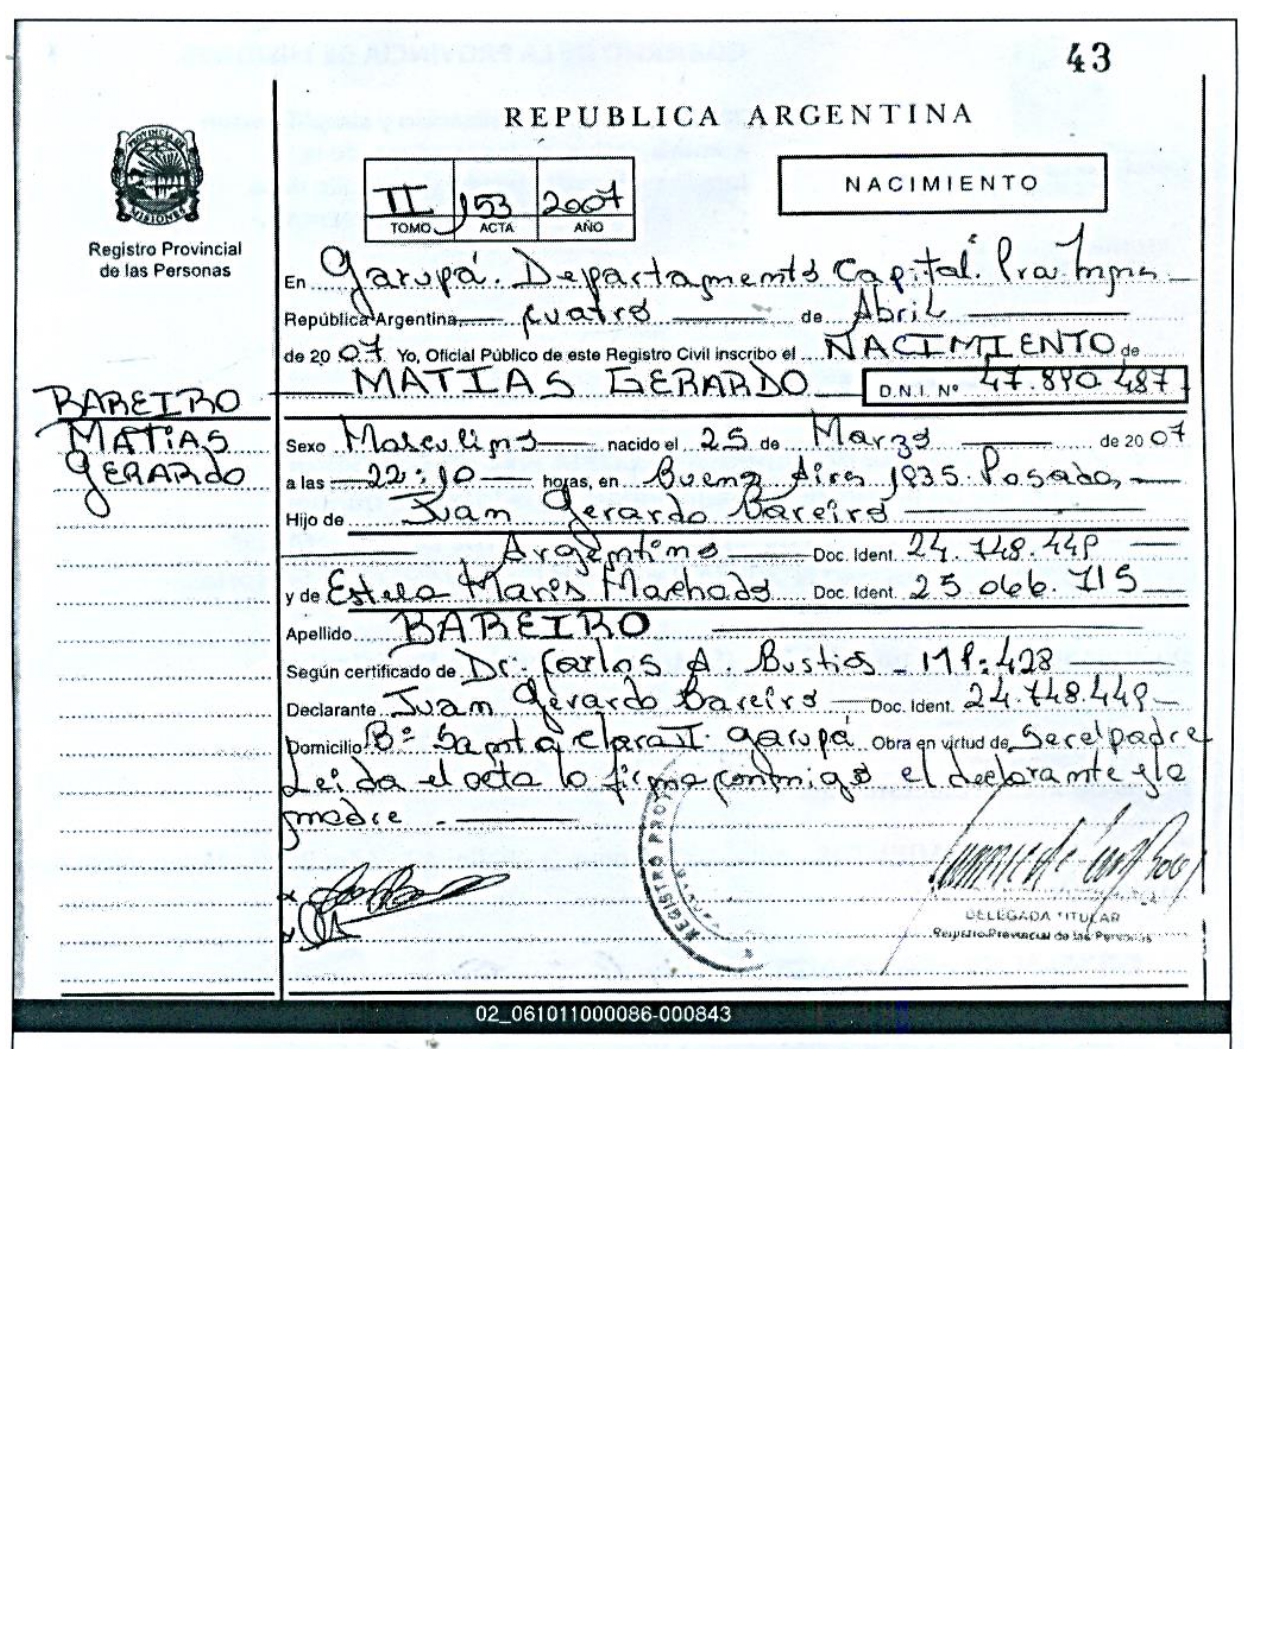 43
REPUBLICA ARGENTINA
PROVINCIA DE
MISIONES
Registro Provincial
de las Personas
II 153 2007
TOMO ACTA AÑO
NACIMIENTO
En Garupá. Departamento Capital. Pcia. Mnes
República Argentina, cuatro de Abril
de 2007 Yo, Oficial Público de este Registro Civil inscribo el NACIMIENTO de
MATIAS GERARDO D.N.I. Nº 47.890.487
BAREIRO
MATIAS
GERARDO
Sexo Masculino nacido el 25 de Marzo de 2007
a las 22:10 horas, en Buenos Aires 1835 Posadas
Hijo de Juan Gerardo Bareiro
Argentino Doc. Ident. 24.748.449
y de Estela Maris Machado Doc. Ident. 25.066.715
Apellido BAREIRO
Según certificado de Dr: Carlos A. Bustios - M.P: 428
Declarante Juan Gerardo Bareiro Doc. Ident. 24.748.449
Domicilio Bº Santa Clara II. Garupá Obra en virtud de Ser el padre
Leida el acta la firma conmigo el declarante y la
madre.
REGISTRO PROV
DELEGADA TITULAR
Registro Provincial de las Personas
02_061011000086-000843